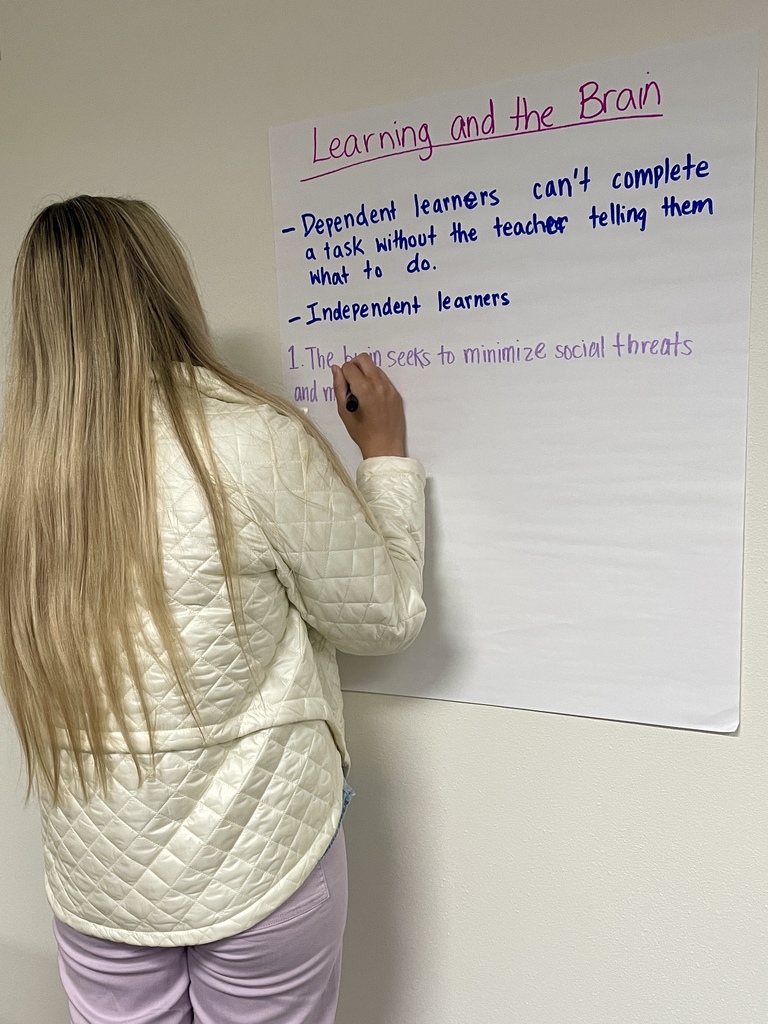 Learning and the Brain
- Dependent learners can't complete
a task without the teacher telling them
what to do.
- Independent learners
1. The brain seeks to minimize social threats
and